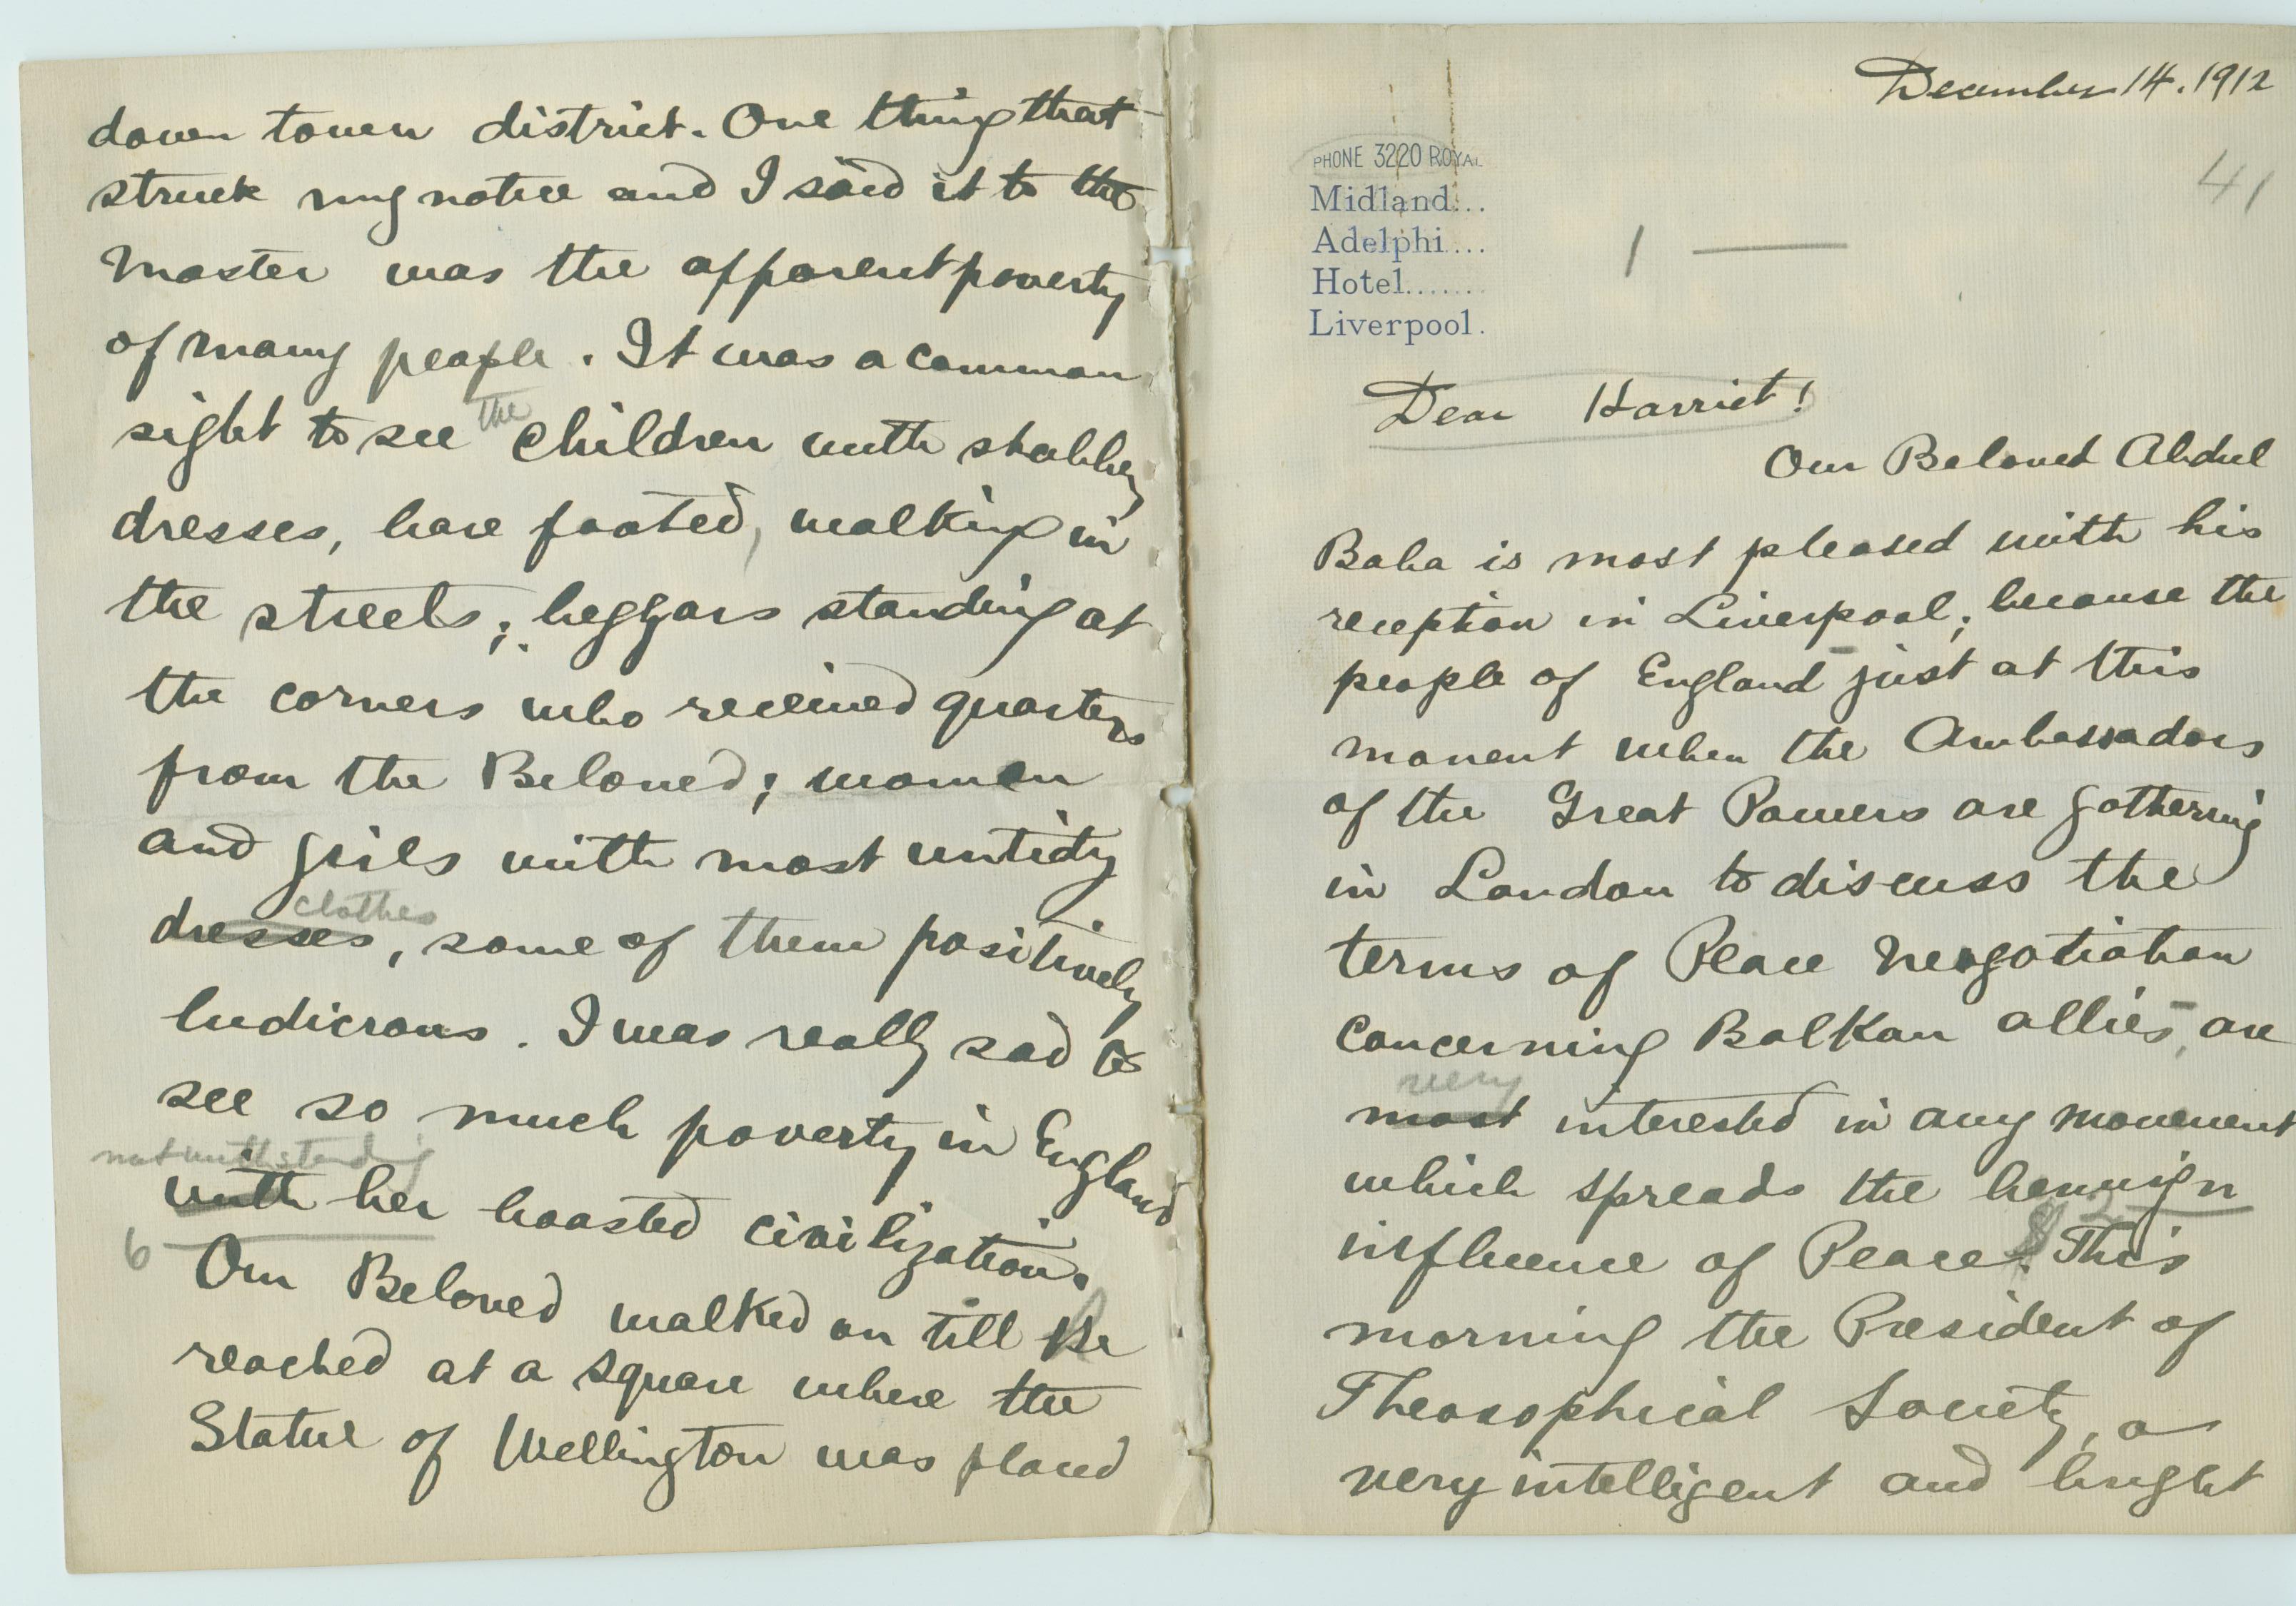 down town district. One thing that
struck my notice and I said it to the
Master was the apparent poverty
of many people. It was a common
the
sight to see children with shabby
dresses, bare footed, walking in
the streets; beggars standing at
the corners who received quarters
from the Beloved; women
and girls with most untidy
clothes
dresses, some of them positively
ludicrous. I was really sad to
see so much poverty in England
notwithstanding
with her boasted civilization.
6
Our Beloved walked on till He
reached at a square where the
Statue of Wellington was placed
December 14. 1912
41
PHONE 3220 ROYAL
Midland...
Adelphi....
Hotel.......
Liverpool.
1 —
Dear Harriet!
Our Beloved Abdul
Baha is most pleased with his
reception in Liverpool; because the
people of England just at this
moment when the Ambassadors
of the Great Powers are gathering
in London to discuss the
terms of Peace Negotiation
concerning Balkan allies, are
very
most interested in any movement
which spreads the benign
2
influence of Peace. This
morning the President of
Theosophical Society, a
very intelligent and bright